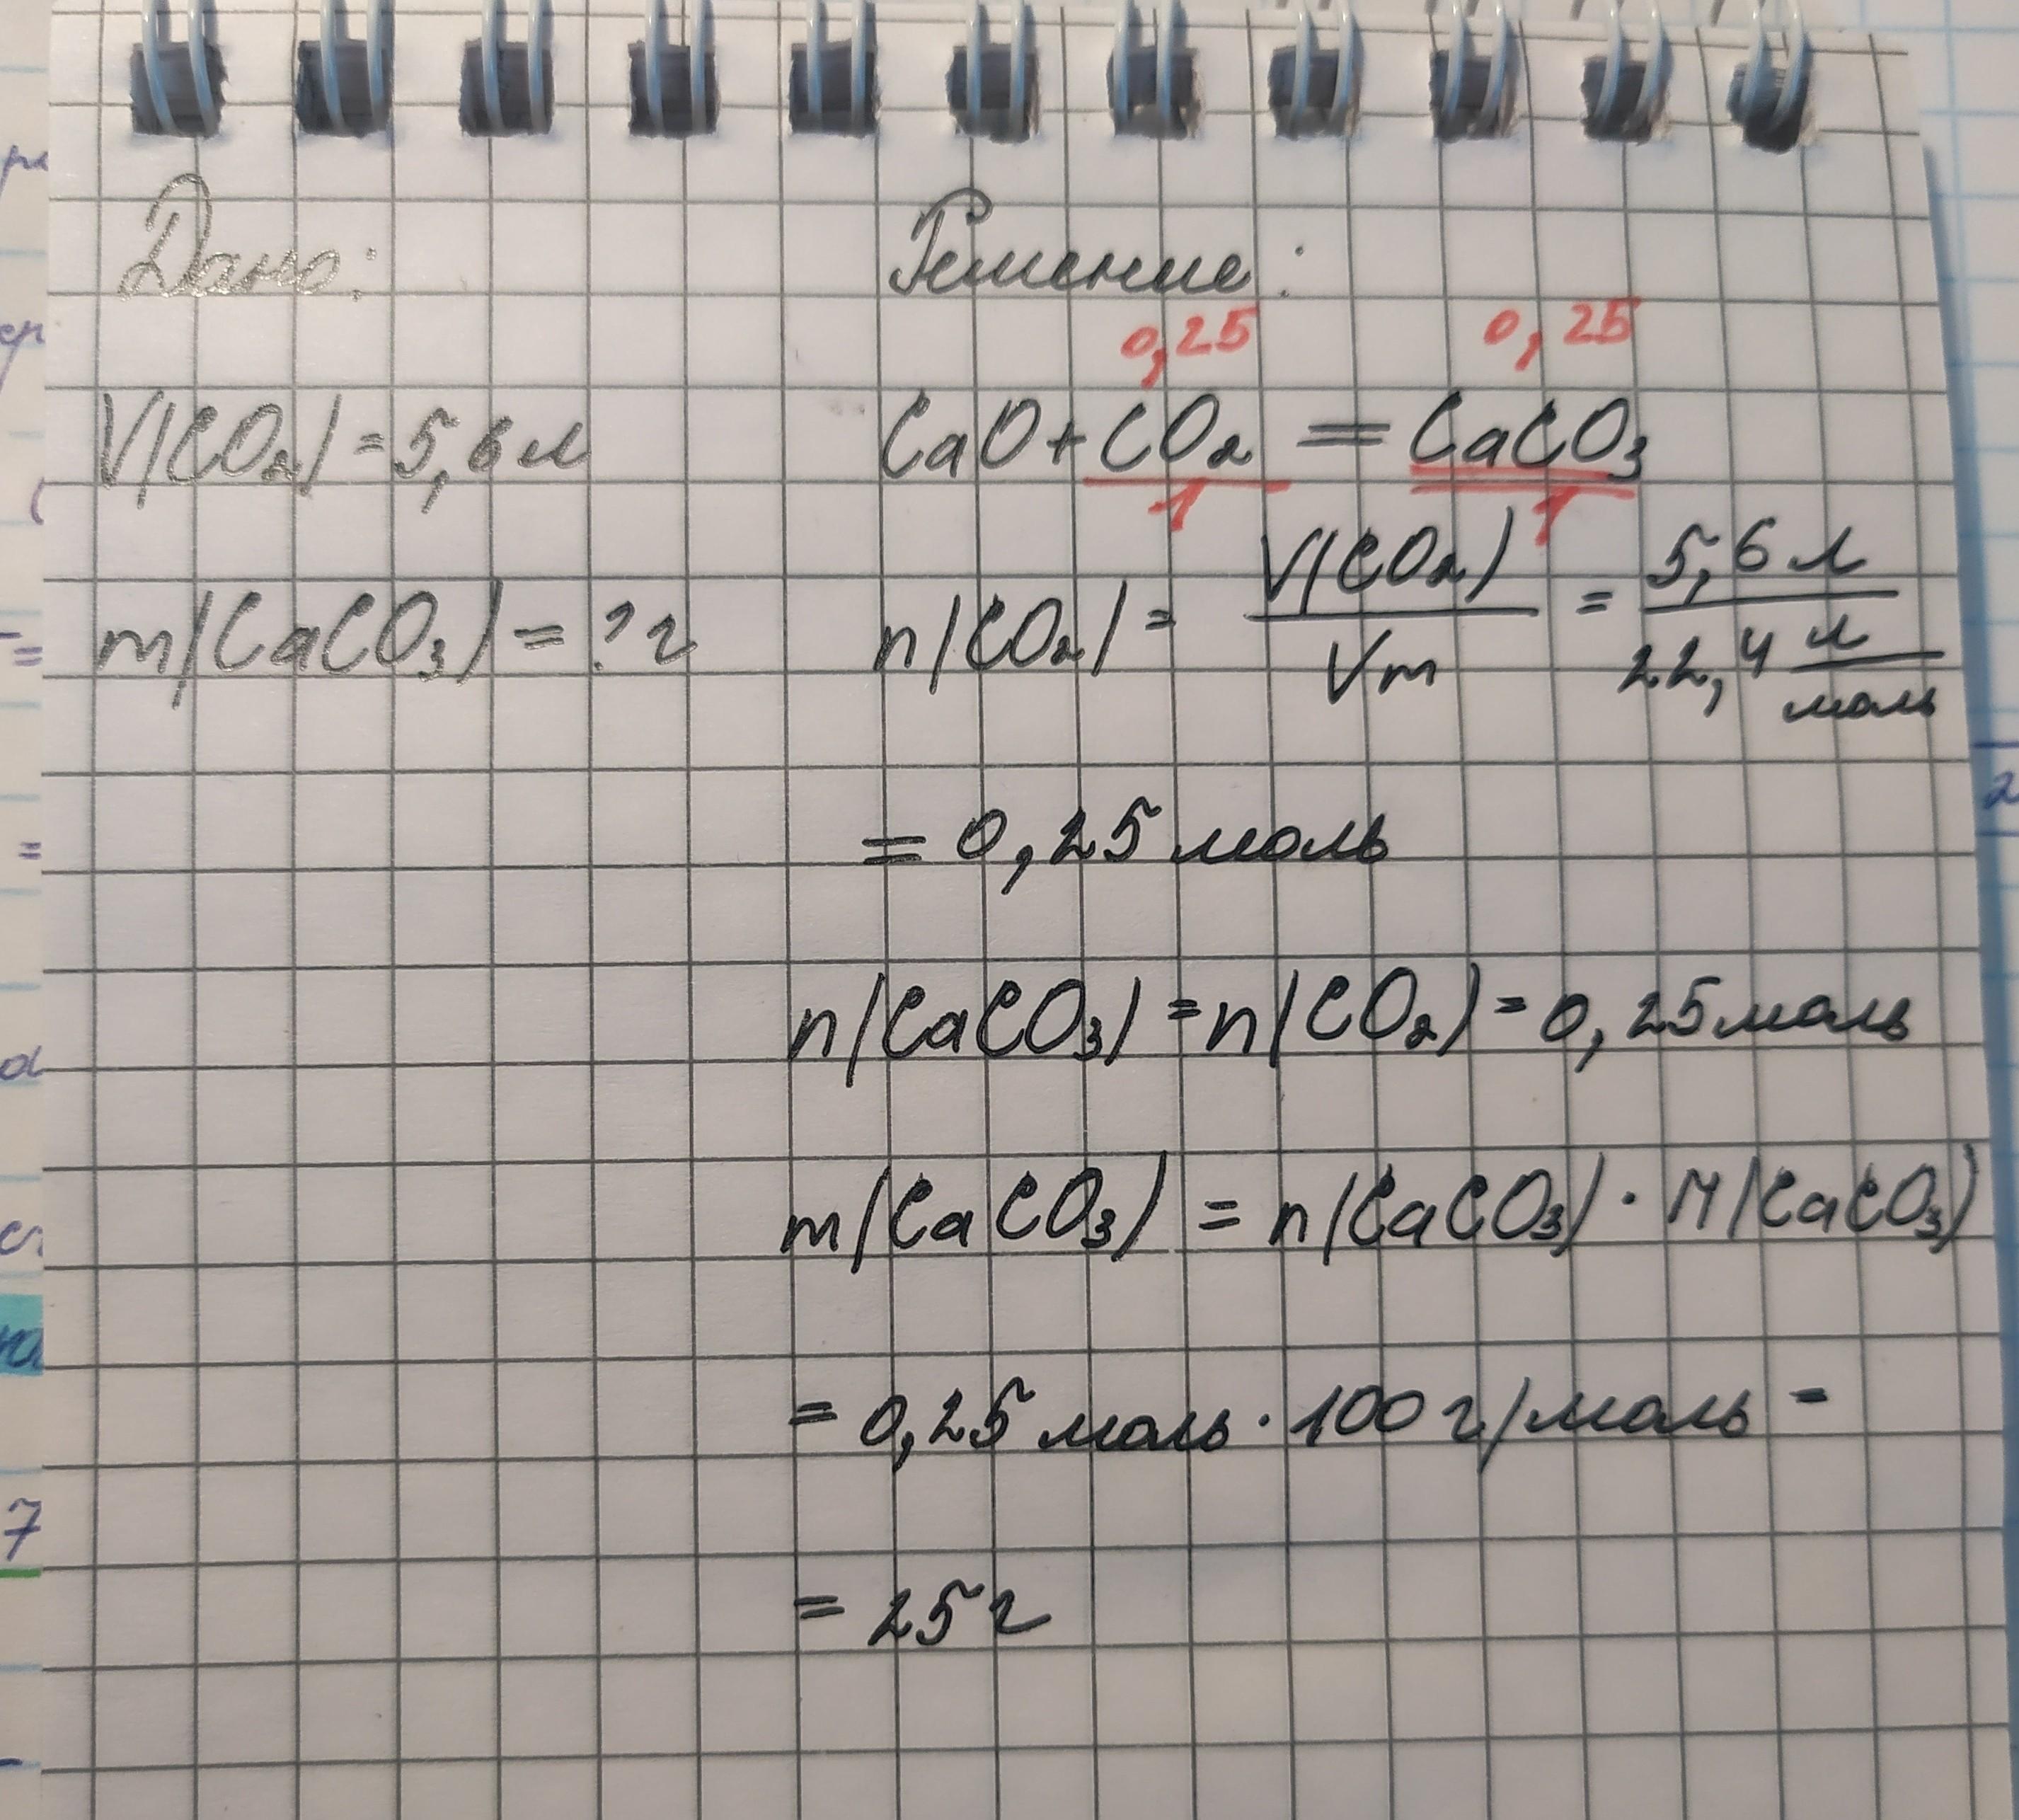 Дано:
V(CO₂) = 5,6 л
m(CaCO₃) = ? г
Решение:
0,25 0,25
CaO + CO₂ = CaCO₃
1 1
n(CO₂) = V(CO₂) / Vm = 5,6 л / 22,4 л/моль
= 0,25 моль
n(CaCO₃) = n(CO₂) = 0,25 моль
m(CaCO₃) = n(CaCO₃) · M(CaCO₃)
= 0,25 моль · 100 г/моль =
= 25 г